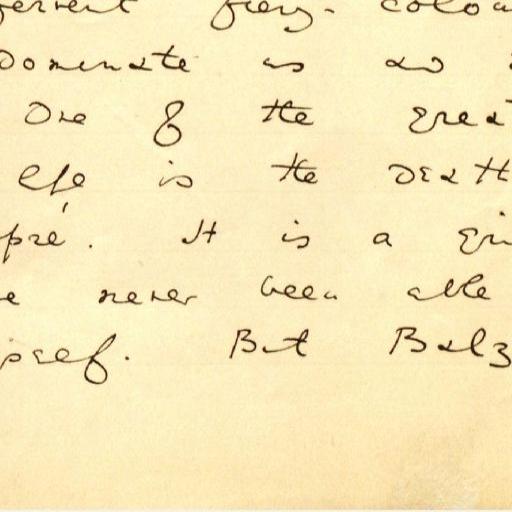 fervent fiery-colou
Dominate us and
One of the great
life is the death
pré. It is a gri
e never been able
yself. But Balz